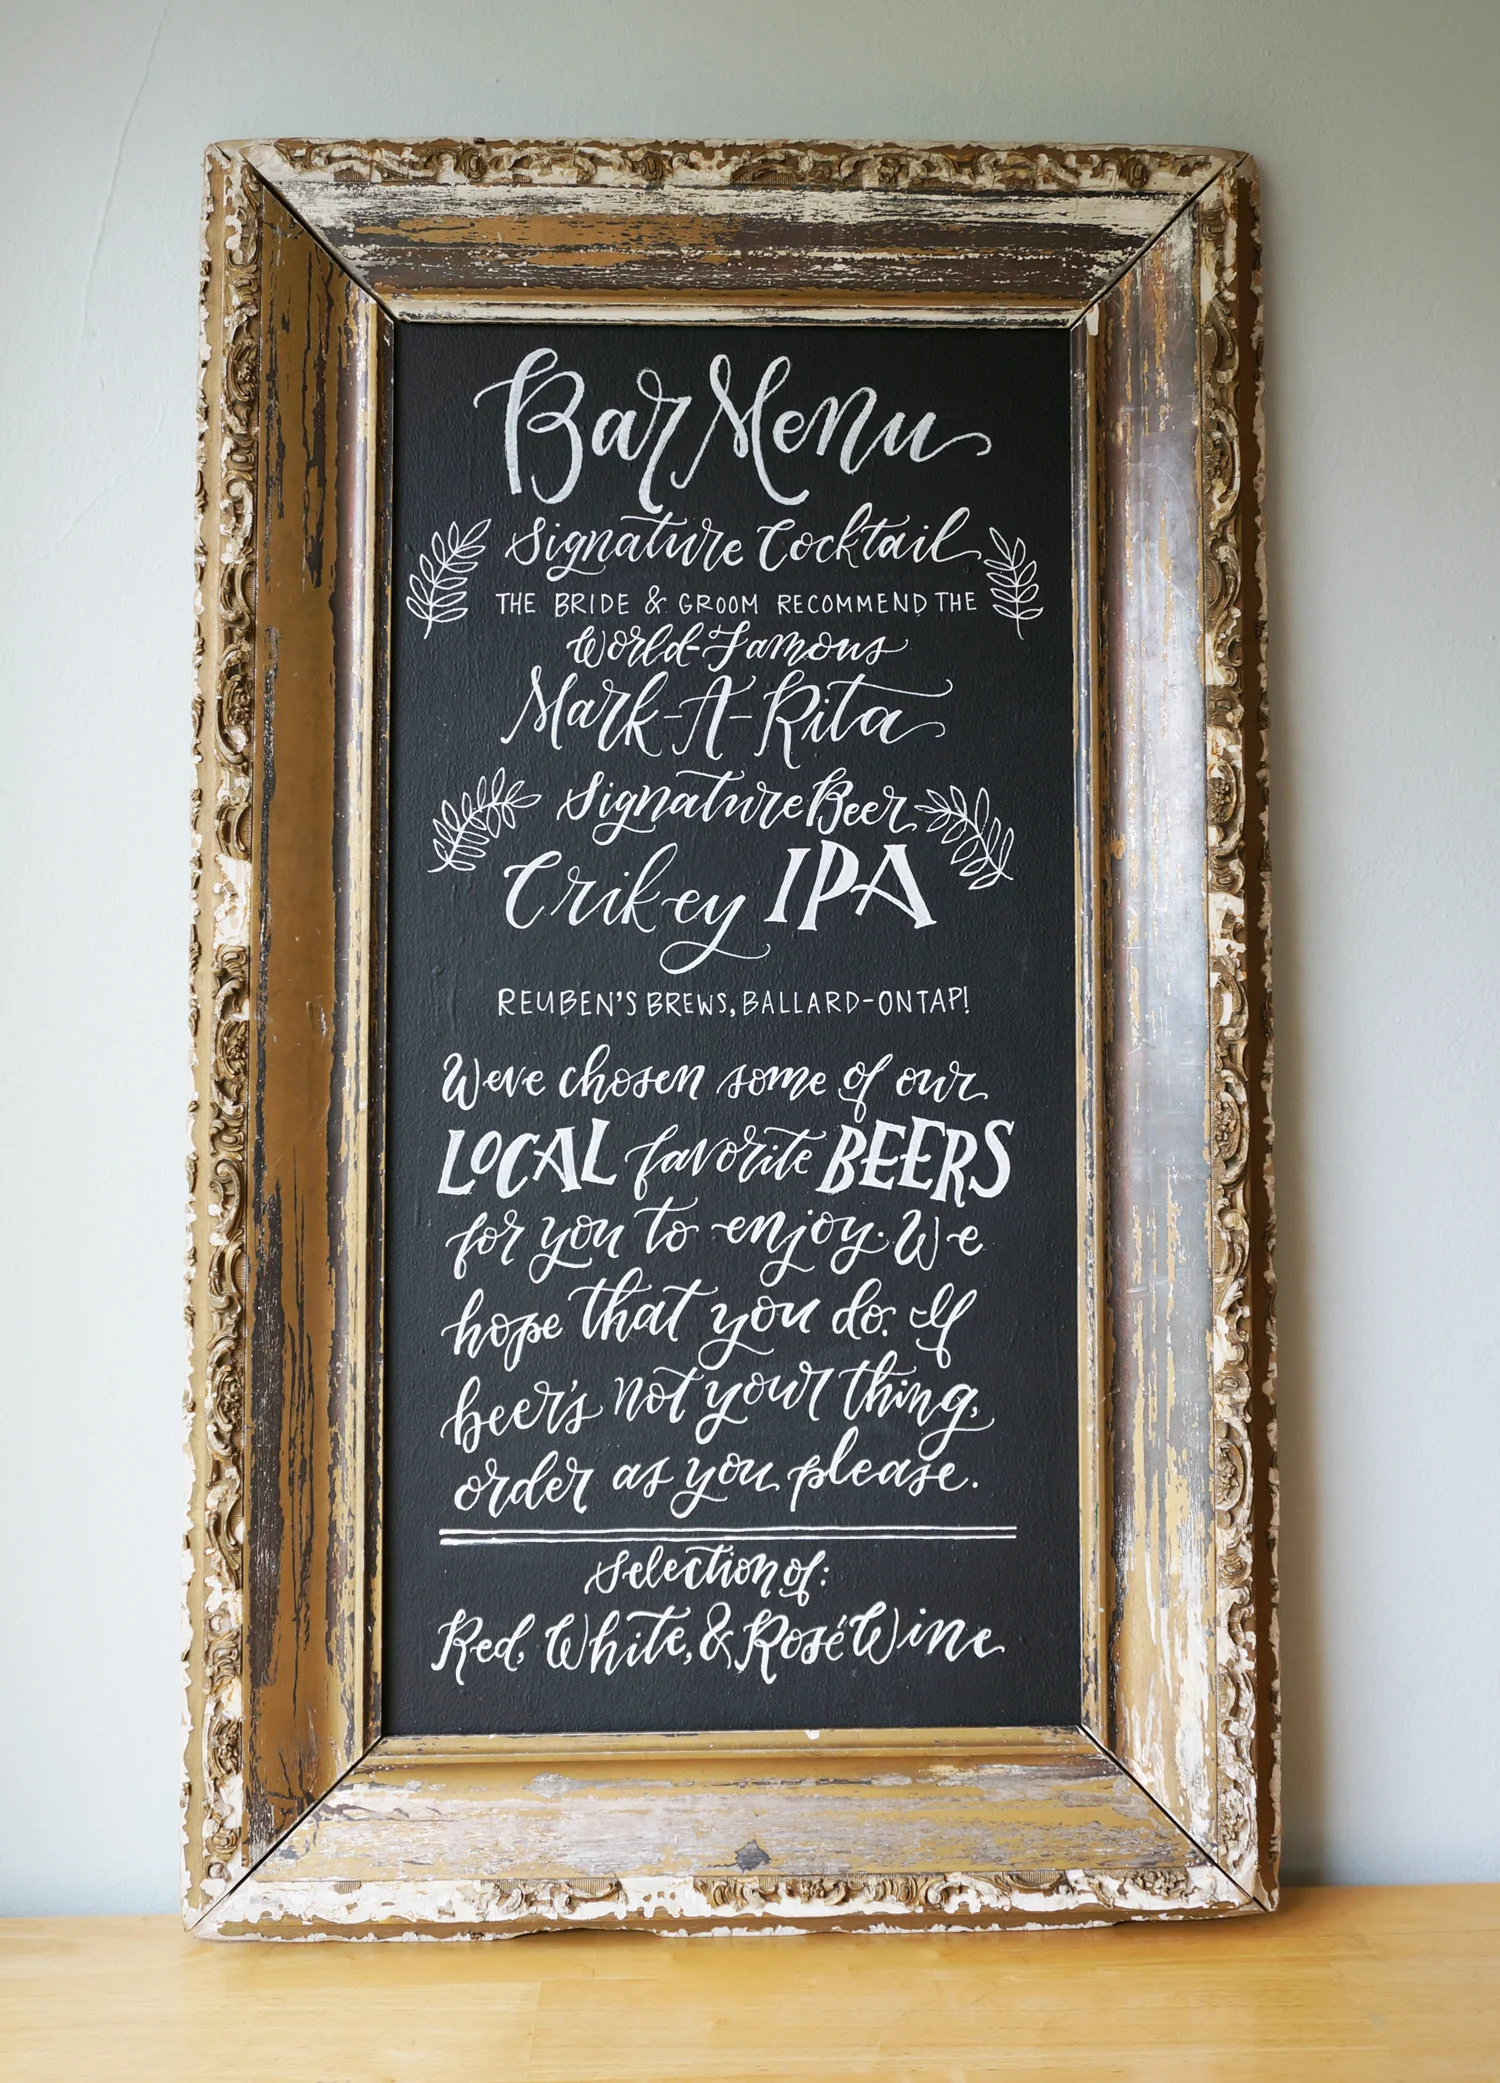 Bar Menu
Signature Cocktail
THE BRIDE & GROOM RECOMMEND THE
World-Famous
Mark-A-Rita
Signature Beer
Crikey IPA
REUBEN'S BREWS, BALLARD-ON TAP!
We've chosen some of our
LOCAL favorite BEERS
for you to enjoy. We
hope that you do. If
beer's not your thing,
order as you please.
Selection of:
Red, White, & Rosé Wine